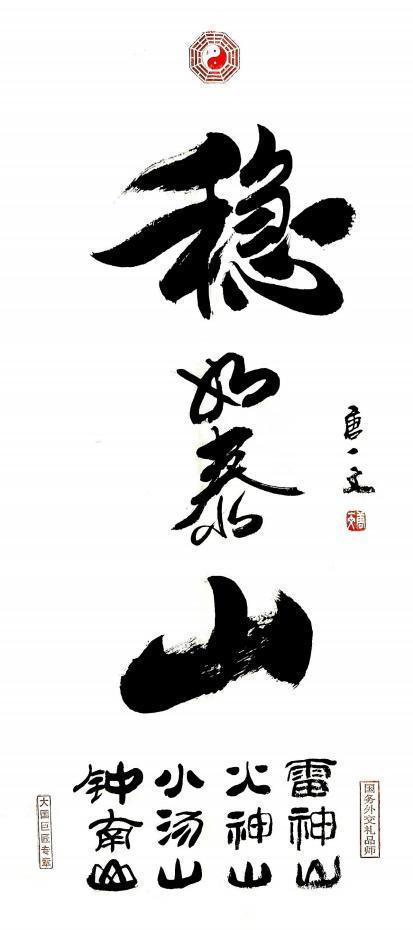 稳
如
泰
山
唐一文
雷神山
火神山
小汤山
钟南山
国务外交礼品师
大国巨匠专章